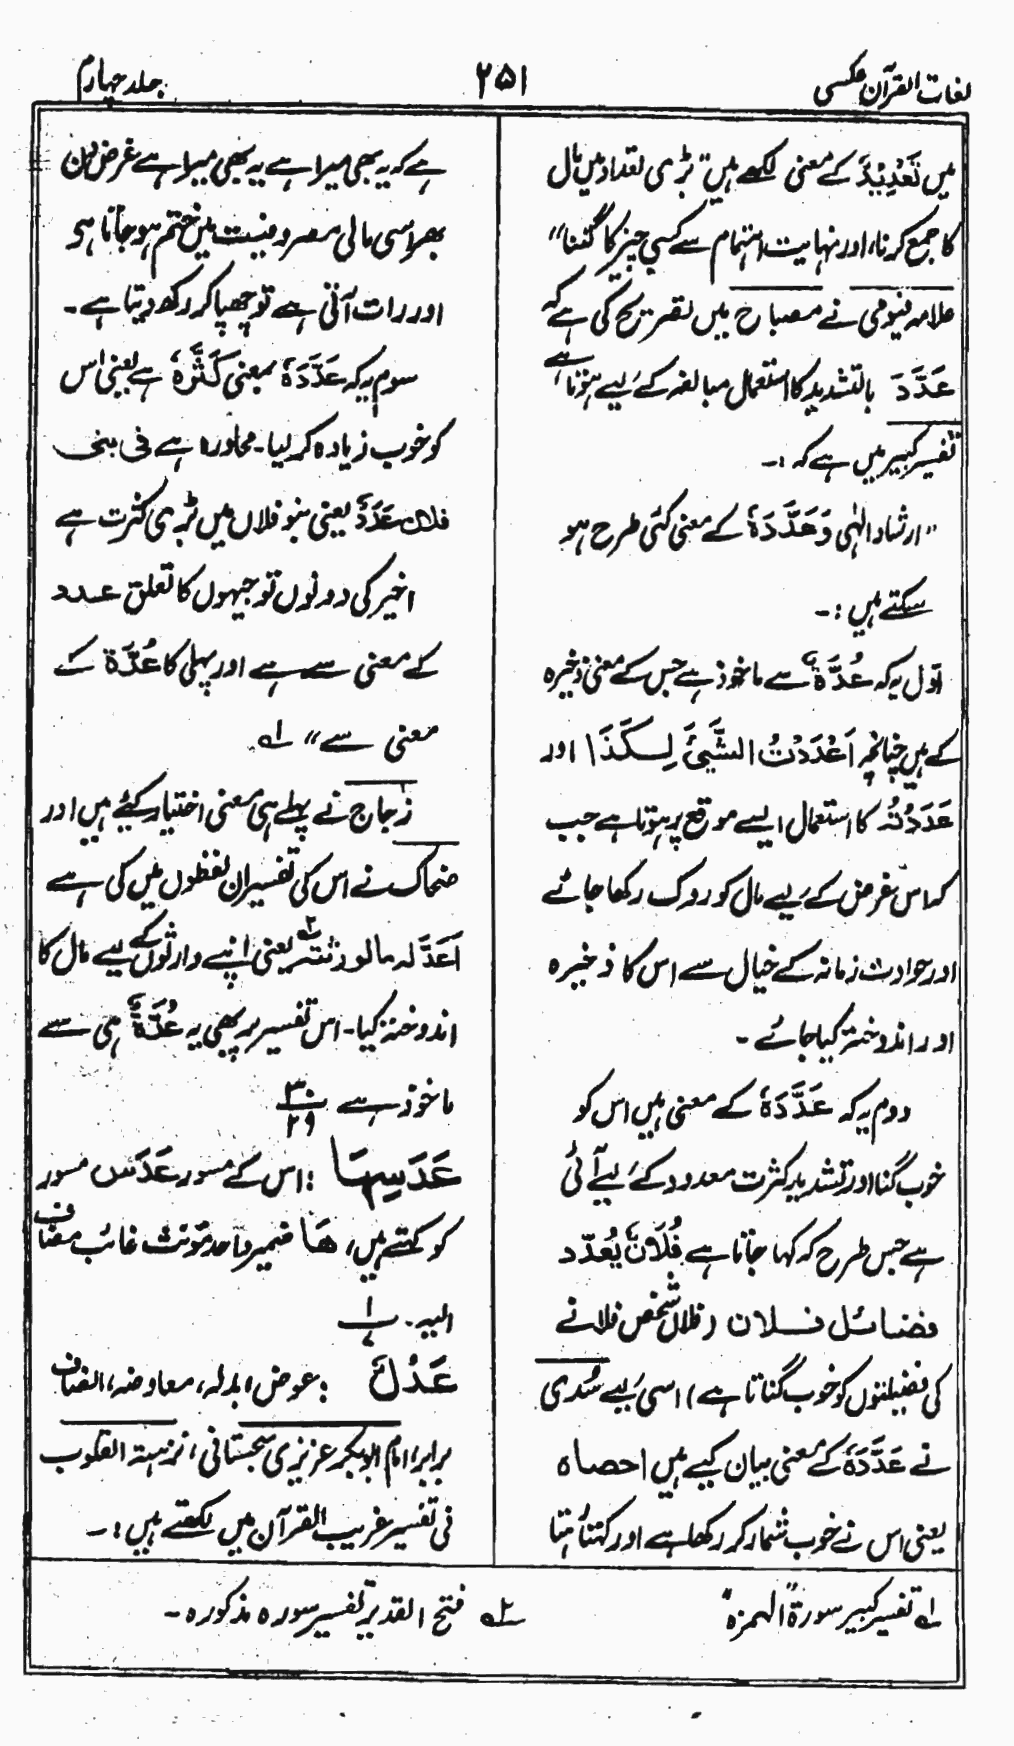 لغات القرآن عکسی
۲۵۱
جلد چہارم
میں تَعْدِیْدَ کے معنی لکھے ہیں "بڑی تعداد میں مال
کا جمع کرنا، اور نہایت اہتمام سے کسی چیز کا گننا"
علامہ فیومی نے مصباح میں تصریح کی ہے کہ
عَدَّدَ بالتشدید کا استعمال مبالغہ کے لیے ہوتا ہے
تفسیر کبیر میں ہے کہ :۔
"ارشاد الٰہی وَعَدَّدَہٗ کے معنی کئی طرح ہو
سکتے ہیں :۔
اوّل یہ کہ عُدَّۃٌ سے ماخوذ ہے جس کے معنی ذخیرہ
کے ہیں چنانچہ اَعْدَدْتُ الشَّیْئَ لِکَذَا اور
عَدَدْتُہ کا استعمال ایسے موقع پر ہوتا ہے جب
کہ اس غرض کے لیے مال کو روک رکھا جائے
اور حوادث زمانہ کے خیال سے اس کا ذخیرہ
اور اندوختہ کیا جائے ۔
دوم یہ کہ عَدَّدَہٗ کے معنی ہیں اس کو
خوب گنا اور تشدید کثرت معدود کے لیے آئی
ہے جس طرح کہ کہا جاتا ہے فُلَانٌ یُعَدِّد
فضائل فلان (فلاں شخص فلانے
کی فضیلتوں کو خوب گناتا ہے) اسی لیے سُدی
نے عَدَّدَہٗ کے معنی بیان کیے ہیں احصاہ
یعنی اس نے خوب شمار کر رکھا ہے اور کہتا
ہے کہ یہ بھی میرا ہے یہ بھی میرا ہے غرض دن
بھر اسی مالی مصروفیت میں ختم ہو جاتا ہو
اور رات آتی ہے تو چھپا کر رکھ دیتا ہے ۔
سوم یہ کہ عَدَّدَہٗ بمعنی کَثَّرَہٗ ہے یعنی اس
کو خوب زیادہ کر لیا۔ محاورہ ہے فی بنی
فلان عَدَدٌ یعنی بنو فلاں میں بڑی کثرت ہے
اخیر کی دونوں توجیہوں کا تعلق عدد
کے معنی سے ہے اور پہلی کا عُدَّۃ کے
معنی سے" لہ
زجاج نے پہلے ہی معنی اختیار کیئے ہیں اور
ضحاک نے اس کی تفسیر ان لفظوں میں کی ہے
اَعَدَّ لہ مالور ثتہ۲ یعنی اپنے وارثوں کے لیے مال کا
اندوختہ کیا۔ اس تفسیر پر بھی یہ عُدَّۃٌ ہی سے
ماخوذ ہے ۳۰/۲۹
عَدَسِہَا :اس کے مسور عَدَس مسور
کو کہتے ہیں، ھَا ضمیر واحد مؤنث غائب مضاف
الیہ۔ ۱/۷
عَدْلٌ :عوض، بدلہ، معاوضہ، انصاف
برابر، امام ابوبکر عزیزی سجستانی، نزہتہ القلوب
فی تفسیر غریب القرآن میں لکھتے ہیں :۔
لہ تفسیر کبیر سورۃ "الہمزہ"
۲ہ فتح القدیر تفسیر سورہ مذکورہ۔